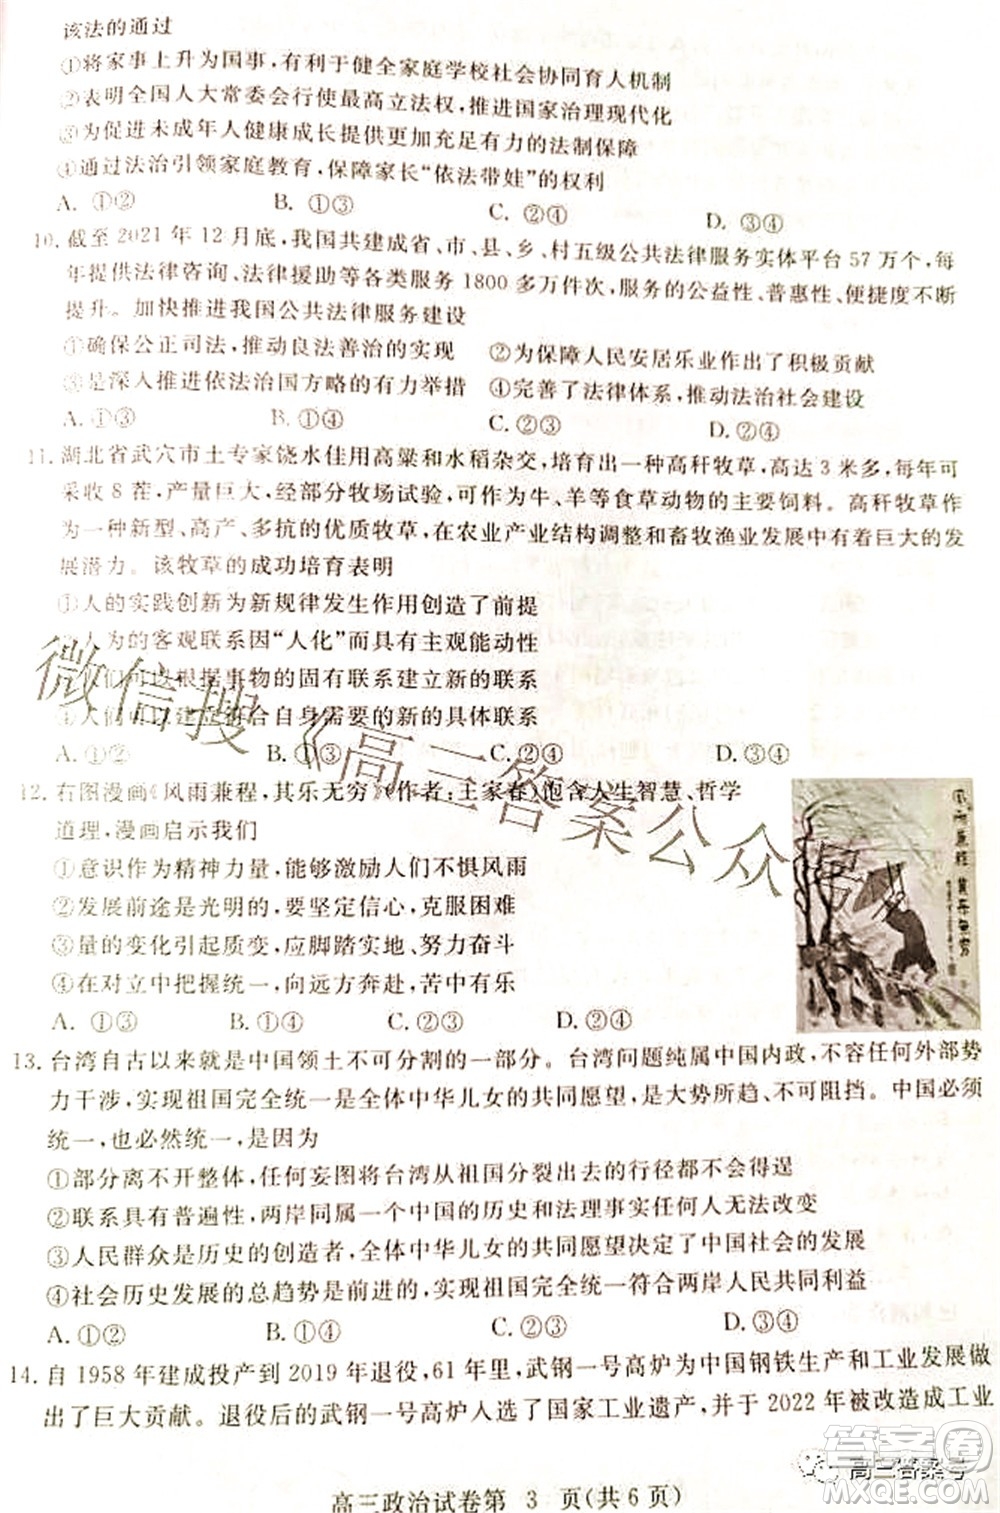 该法的通过
①将家事上升为国事，有利于健全家庭学校社会协同育人机制
②表明全国人大常委会行使最高立法权，推进国家治理现代化
③为促进未成年人健康成长提供更加充足有力的法制保障
④通过法治引领家庭教育，保障家长“依法带娃”的权利
A. ①② B. ①③ C. ②④ D. ③④
10. 截至 2021 年 12 月底，我国共建成省、市、县、乡、村五级公共法律服务实体平台 57 万个，每
年提供法律咨询、法律援助等各类服务 1800 多万件次，服务的公益性、普惠性、便捷度不断
提升。加快推进我国公共法律服务建设
①确保公正司法，推动良法善治的实现 ②为保障人民安居乐业作出了积极贡献
③是深入推进依法治国方略的有力举措 ④完善了法律体系，推动法治社会建设
A. ①③ B. ①④ C. ②③ D. ②④
11. 湖北省武穴市土专家饶水佳用高粱和水稻杂交，培育出一种高秆牧草，高达 3 米多，每年可
采收 8 茬，产量巨大，经部分牧场试验，可作为牛、羊等食草动物的主要饲料。高秆牧草作
为一种新型、高产、多抗的优质牧草，在农业产业结构调整和畜牧渔业发展中有着巨大的发
展潜力。该牧草的成功培育表明
①人的实践创新为新规律发生作用创造了前提
②人为的客观联系因“人化”而具有主观能动性
③人们可以根据事物的固有联系建立新的联系
④人们可以建立符合自身需要的新的具体联系
A. ①② B. ①③ C. ②④ D. ③④
12. 右图漫画《风雨兼程，其乐无穷》(作者：王家春)饱含人生智慧、哲学
道理，漫画启示我们
①意识作为精神力量，能够激励人们不惧风雨
②发展前途是光明的，要坚定信心，克服困难
③量的变化引起质变，应脚踏实地、努力奋斗
④在对立中把握统一，向远方奔赴，苦中有乐
A. ①③ B. ①④ C. ②③ D. ②④
13. 台湾自古以来就是中国领土不可分割的一部分。台湾问题纯属中国内政，不容任何外部势
力干涉，实现祖国完全统一是全体中华儿女的共同愿望，是大势所趋、不可阻挡。中国必须
统一，也必然统一，是因为
①部分离不开整体，任何妄图将台湾从祖国分裂出去的行径都不会得逞
②联系具有普遍性，两岸同属一个中国的历史和法理事实任何人无法改变
③人民群众是历史的创造者，全体中华儿女的共同愿望决定了中国社会的发展
④社会历史发展的总趋势是前进的，实现祖国完全统一符合两岸人民共同利益
A. ①② B. ①④ C. ②③ D. ③④
14. 自 1958 年建成投产到 2019 年退役，61 年里，武钢一号高炉为中国钢铁生产和工业发展做
出了巨大贡献。退役后的武钢一号高炉入选了国家工业遗产，并于 2022 年被改造成工业
高三政治试卷第 3 页(共 6 页)
微信搜《高三答案公众号》
高三答案号
答案圈